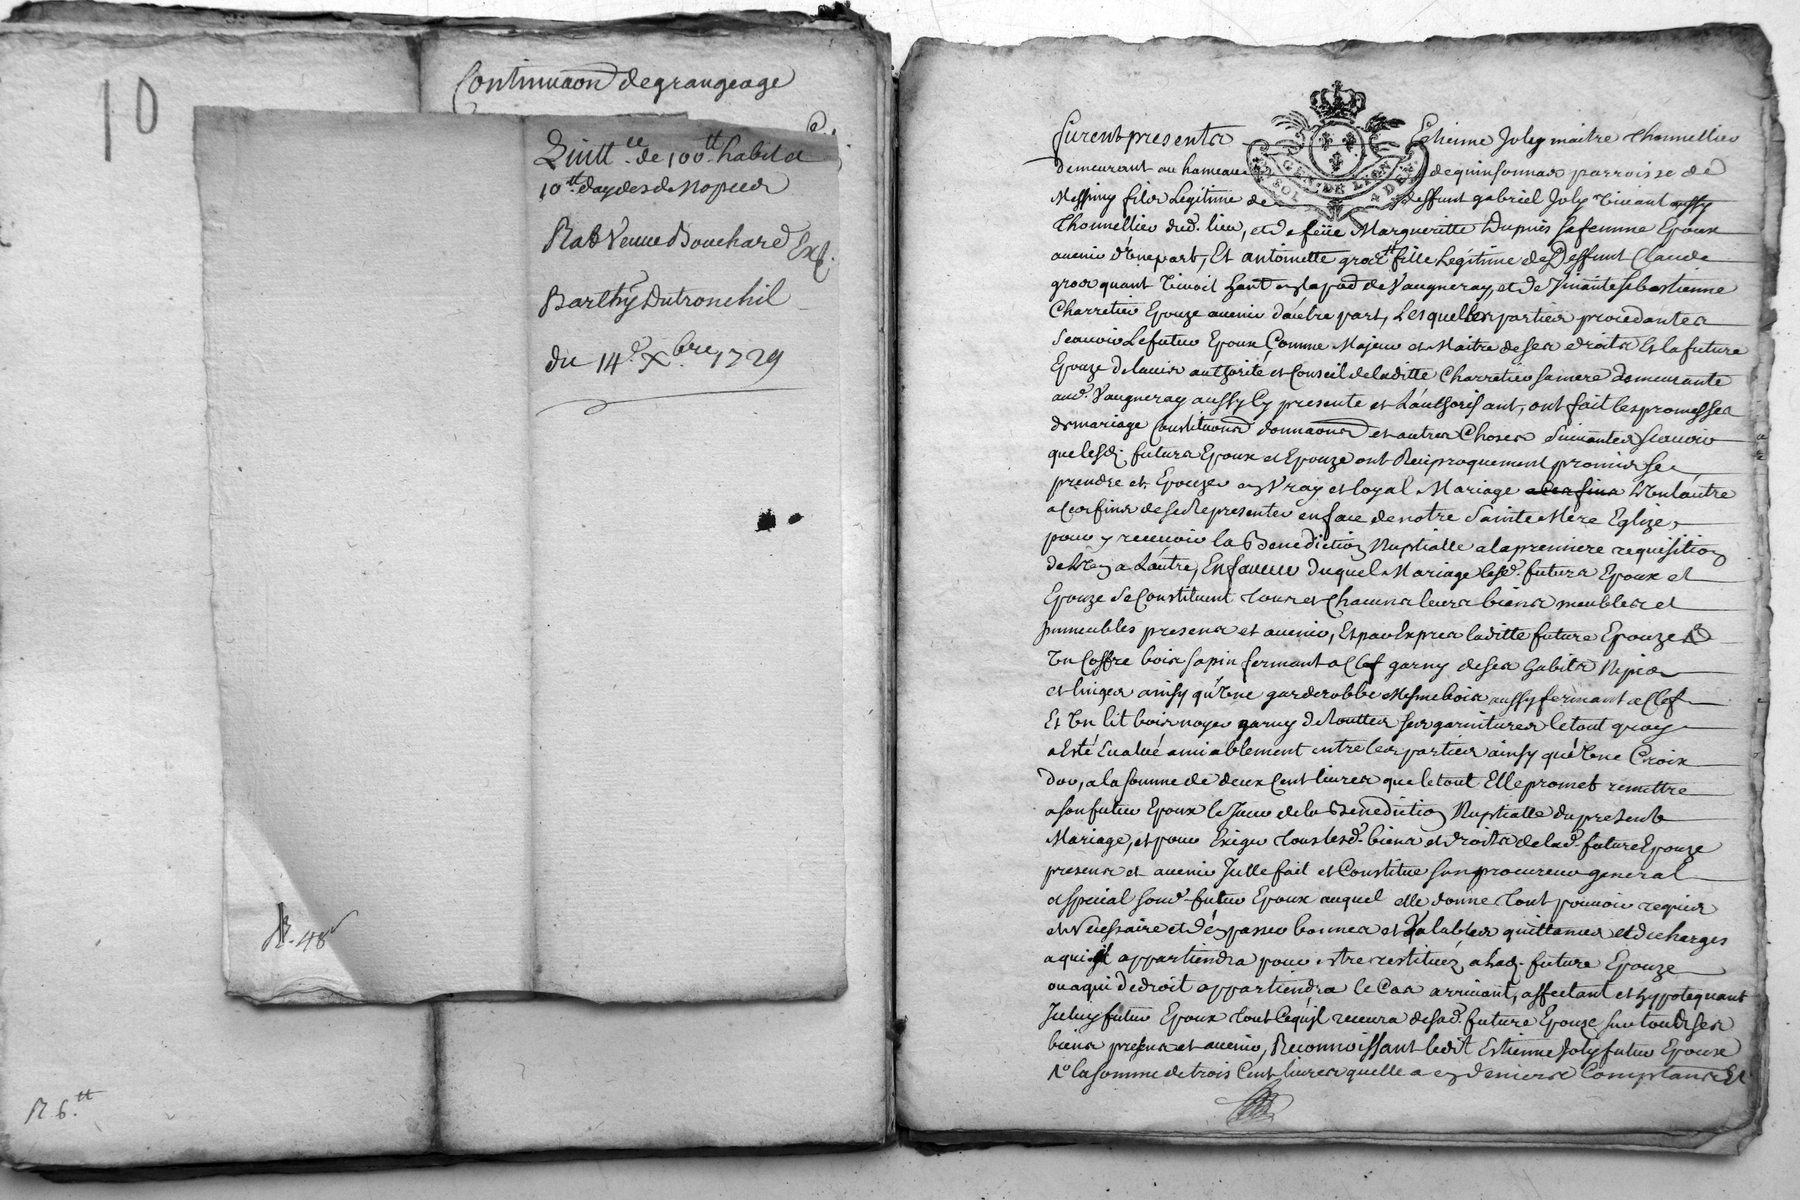 10
Continuaon degrangeage
Quitt.ce de 100.tt habit et
10.tt daydes de Nopces
Veuve Bouchard
Barthy Dutronchil
du 14.e Xbre 1729
R. 48
R 6.tt
furent presents Etienne Joly maitre thonnellier
GEN. DE LION
demeurant au hameau de quinsonnas parroisse de
Messimy fils Legitime de deffunt gabriel Joly vivant aussy
thonnellier dud. lieu, et de feüe Margueritte Dupuis sa femme Epoux
avenir d'une part, Et antoinette gros fille Legitime de Deffunt Claude
gros quant vivoit de Vaugneray, et de vivante sebastienne
Charretier Epouze avenir d'autre part, Lesquelles parties procedantes
scavoir Le futur Epoux Comme Majeur et Maitre de ses droits Et la future
Epouze de lavis authorité et Conseil de laditte Charretier sa mere demeurante
aud. Vaugneray aussy Cy presente et L'authorisant, ont fait les promesses
de mariage Constituons donnaons et autres Choses suivantes scavoir
que lesd. futurs Epoux et Epouze ont Reciproquement promis se
prendre et Epouzer en Vray et loyal Mariage a ces fins L'un l'autre
a ces fins de se Representer en face de notre Sainte Mere Eglize
pour y recevoir la Benediction Nuptialle a la premiere requisition
de L'un a L'autre, En faveur duquel Mariage lesd. futurs Epoux et
Epouze se Constituent tous et Chacuns leurs biens meubles et
Immeubles presens et avenir, Et par Exprès laditte future Epouze
Un Coffre bois sapin fermant a Clef garny de ses habits Nipes
et linges ainsy qu'une garderobbe Mesme bois aussy fermant a Clef
Et Un lit bois noyer garny de touttes ses garnitures le tout quoy
a Esté Evalué amiablement entre les parties ainsy qu'une Croix
D'or, a la somme de deux Cent livres que le tout Elle promet remettre
a son futur Epoux le Jour de la Benediction Nuptialle du present
Mariage, et pour Exiger tous lesd. biens et droits de lad. future Epouze
presens et avenir Icelle fait et Constitue son procureur general
et special sond. futur Epoux auquel elle donne tout pouvoir requis
et Necessaire et d'en passer bonnes et Valables quittances et decharges
a qui il appartiendra pour estre restitués a lad. future Epouze
ou a qui de droit appartiendra le Cas arrivant, affectant et hypotequant
Iceluy futur Epoux tout Ce qu'il recevra de sad. future Epouze sur touts ses
biens presens et avenir, Reconnoissant ledit Estienne Joly futur Epoux
la somme de trois Cent livres quelle a en deniers Comptans Et